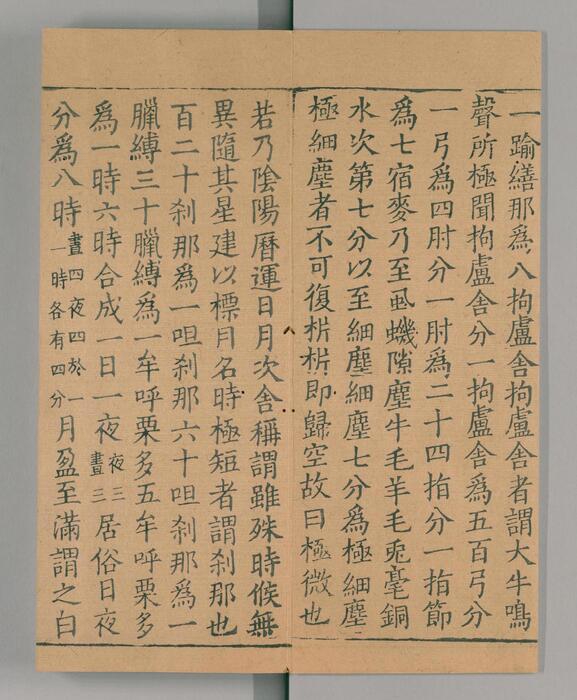 一踰繕那為八拘盧舍拘盧舍者謂大牛鳴
聲所極聞拘盧舍分一拘盧舍為五百弓分
一弓為四肘分一肘為二十四指分一指節
為七宿麥乃至虱蟣隙塵牛毛羊毛兎毫銅
水次第七分以至細塵細塵七分為極細塵
極細塵者不可復枿枿即歸空故曰極微也
若乃陰陽曆運日月次舍稱謂雖殊時候無
異隨其星建以標月名時極短者謂剎那也
百二十剎那為一呾剎那六十呾剎那為一
臘縛三十臘縛為一牟呼栗多五牟呼栗多
為一時六時合成一日一夜夜三晝三居俗日夜
分為八時晝四夜四於一一時各有四分月盈至滿謂之白